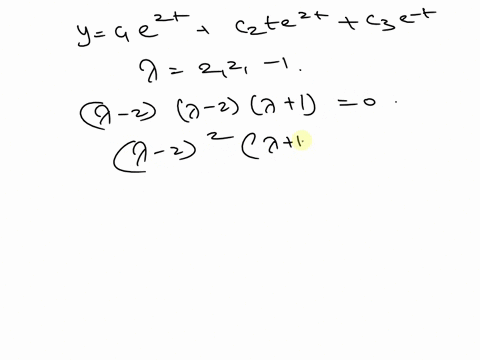 y = c₁e^{2t} + c₂te^{2t} + c₃e^{-t}
λ = 2, 2, -1.
(λ-2) (λ-2) (λ+1) = 0.
(λ-2)² (λ+1